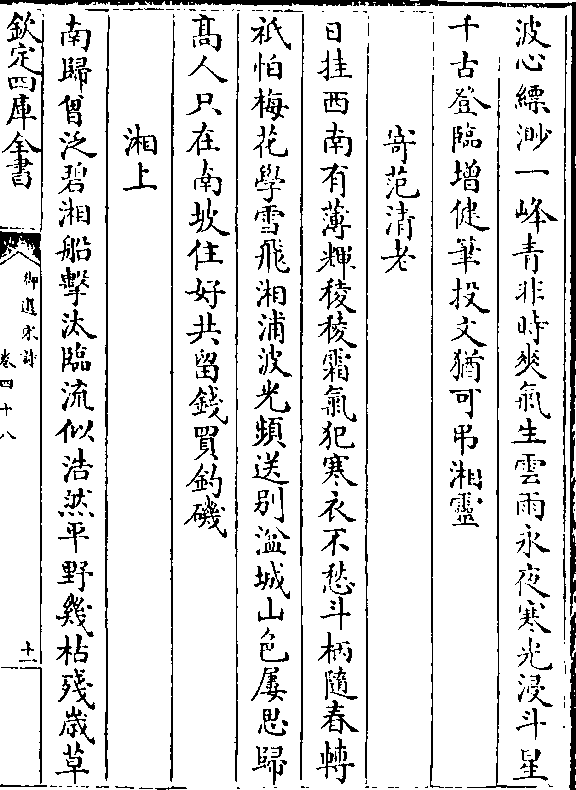 波心縹渺一峰青非時爽氣生雲雨永夜寒光浸斗星
千古登臨增健筆投文猶可弔湘靈
寄范清老
日挂西南有薄輝稜稜霜氣犯寒衣不愁斗柄隨春轉
祇怕梅花學雪飛湘浦波光頻送別湓城山色屢思歸
髙人只在南坡住好共留錢買釣磯
湘上
南歸曾泛碧湘船擊汰臨流似浩然平野幾枯殘嵗草
欽定四庫全書
御選宋詩
卷四十八
十一